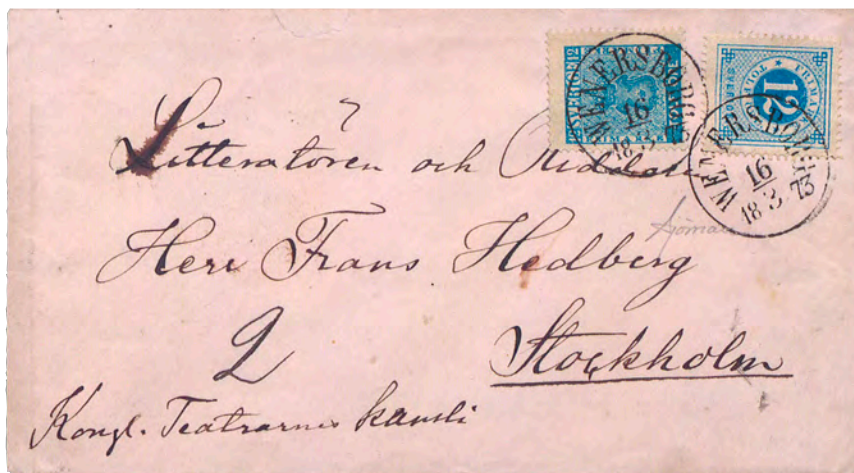 WENERSBORG
16
18 3 73
FRIMÄRKE
12
TOLF
SVERIGE
WENERSBORG
16
18 3 73
Litteratören och Riddaren
Herr Frans Hedberg
2
Stockholm
Kongl. Teatrarnes kansli